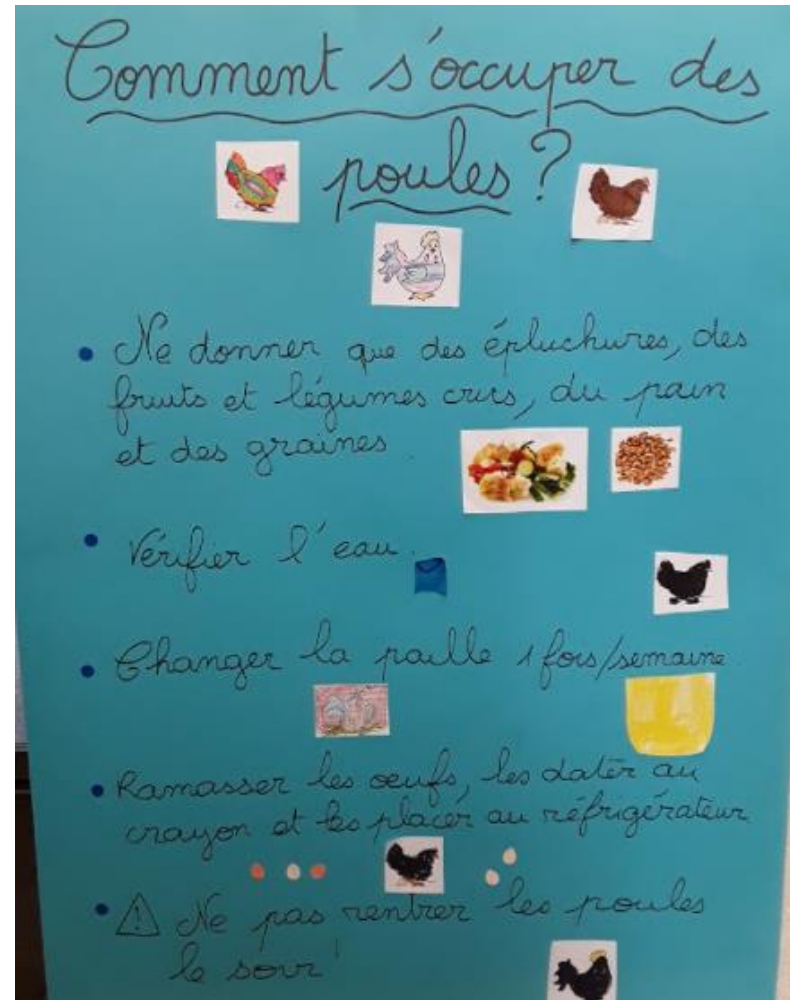 Comment s'occuper des
poules ?
• Ne donner que des épluchures, des
fruits et légumes crus, du pain
et des graines.
• Vérifier l'eau.
• Changer la paille 1 fois/semaine.
• Ramasser les oeufs, les dater au
crayon et les placer au réfrigérateur
• ⚠ Ne pas rentrer les poules
le soir !